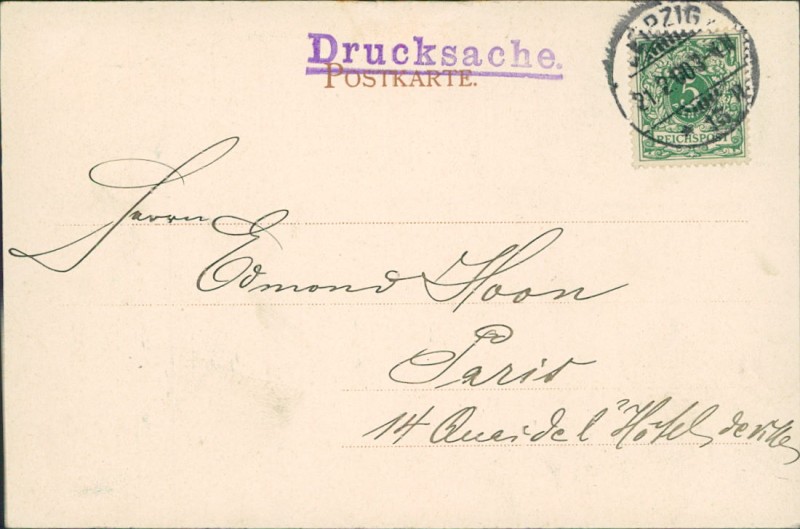 Drucksache.
POSTKARTE.
LEIPZIG
21.2.00
5
REICHSPOST
Herrn
Edmond Hoon
Paris
14 Quai de l'Hôtel de ville